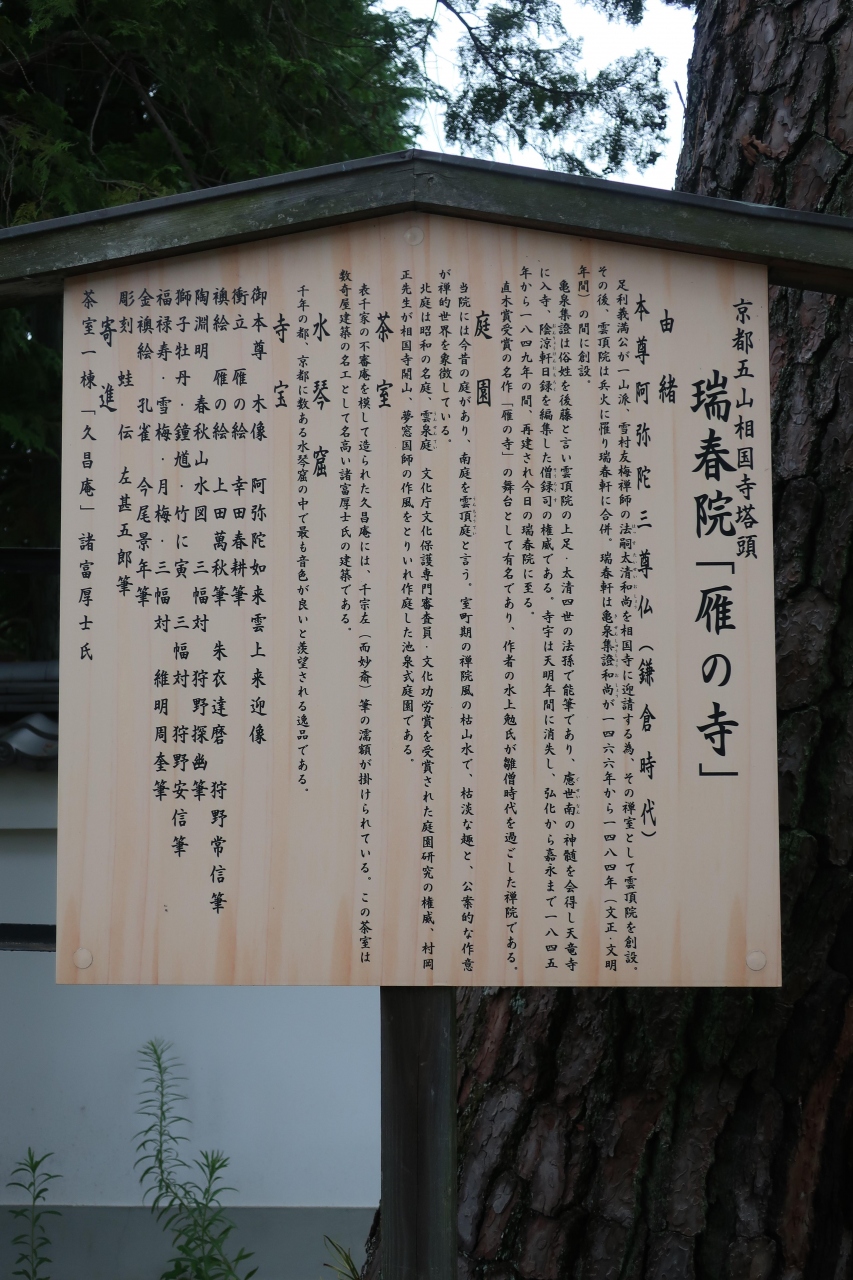 京都五山相国寺塔頭
瑞春院「雁の寺」
由緒
本尊阿弥陀三尊仏(鎌倉時代)
足利義満公が一山派、雪村友梅禅師の法嗣太清和尚を相国寺に迎請する為、その禅室として雲頂院を創設。
その後、雲頂院は兵火に罹り瑞春軒に合併。瑞春軒は亀泉集證和尚が一四六六年から一四八四年(文正・文明
年間)の間に創設。
亀泉集證は俗姓を後藤と言い雲頂院の上足・太清四世の法孫で能筆であり、虞世南の神髄を会得し天竜寺
に入寺、陰涼軒日録を編集した僧録司の権威である。寺宇は天明年間に消失し、弘化から嘉永まで一八四五
年から一八四九年の間、再建され今日の瑞春院に至る。
直木賞受賞の名作「雁の寺」の舞台として有名であり、作者の水上勉氏が雛僧時代を過ごした禅院である。
庭園
当院には今昔の庭があり、南庭を雲頂庭と言う。室町期の禅院風の枯山水で、枯淡な趣と、公案的な作意
が禅的世界を象徴している。
北庭は昭和の名庭、雲泉庭 文化庁文化保護専門審査員・文化功労賞を受賞された庭園研究の権威、村岡
正先生が相国寺開山、夢窓国師の作風をとりいれ作庭した池泉式庭園である。
茶室
表千家の不審庵を模して造られた久昌庵には、千宗左(而妙斎)筆の濡額が掛けられている。この茶室は
数奇屋建築の名工として名高い諸富厚士氏の建築である。
水琴窟
千年の都、京都に数ある水琴窟の中で最も音色が良いと羨望される逸品である。
寺宝
御本尊 木像 阿弥陀如来雲上来迎像
衝立 雁の絵 幸田春耕筆
襖絵 雁の絵 上田萬秋筆 朱衣達磨 狩野常信筆
陶淵明 春秋山水図 三幅対 狩野探幽筆
獅子牡丹・鐘馗・竹に寅 三幅対 狩野安信筆
福禄寿・雪梅・月梅・三幅対 維明周奎筆
金襖絵 孔雀 今尾景年筆
彫刻 蛙 伝 左甚五郎筆
寄進
茶室一棟「久昌庵」諸富厚士氏